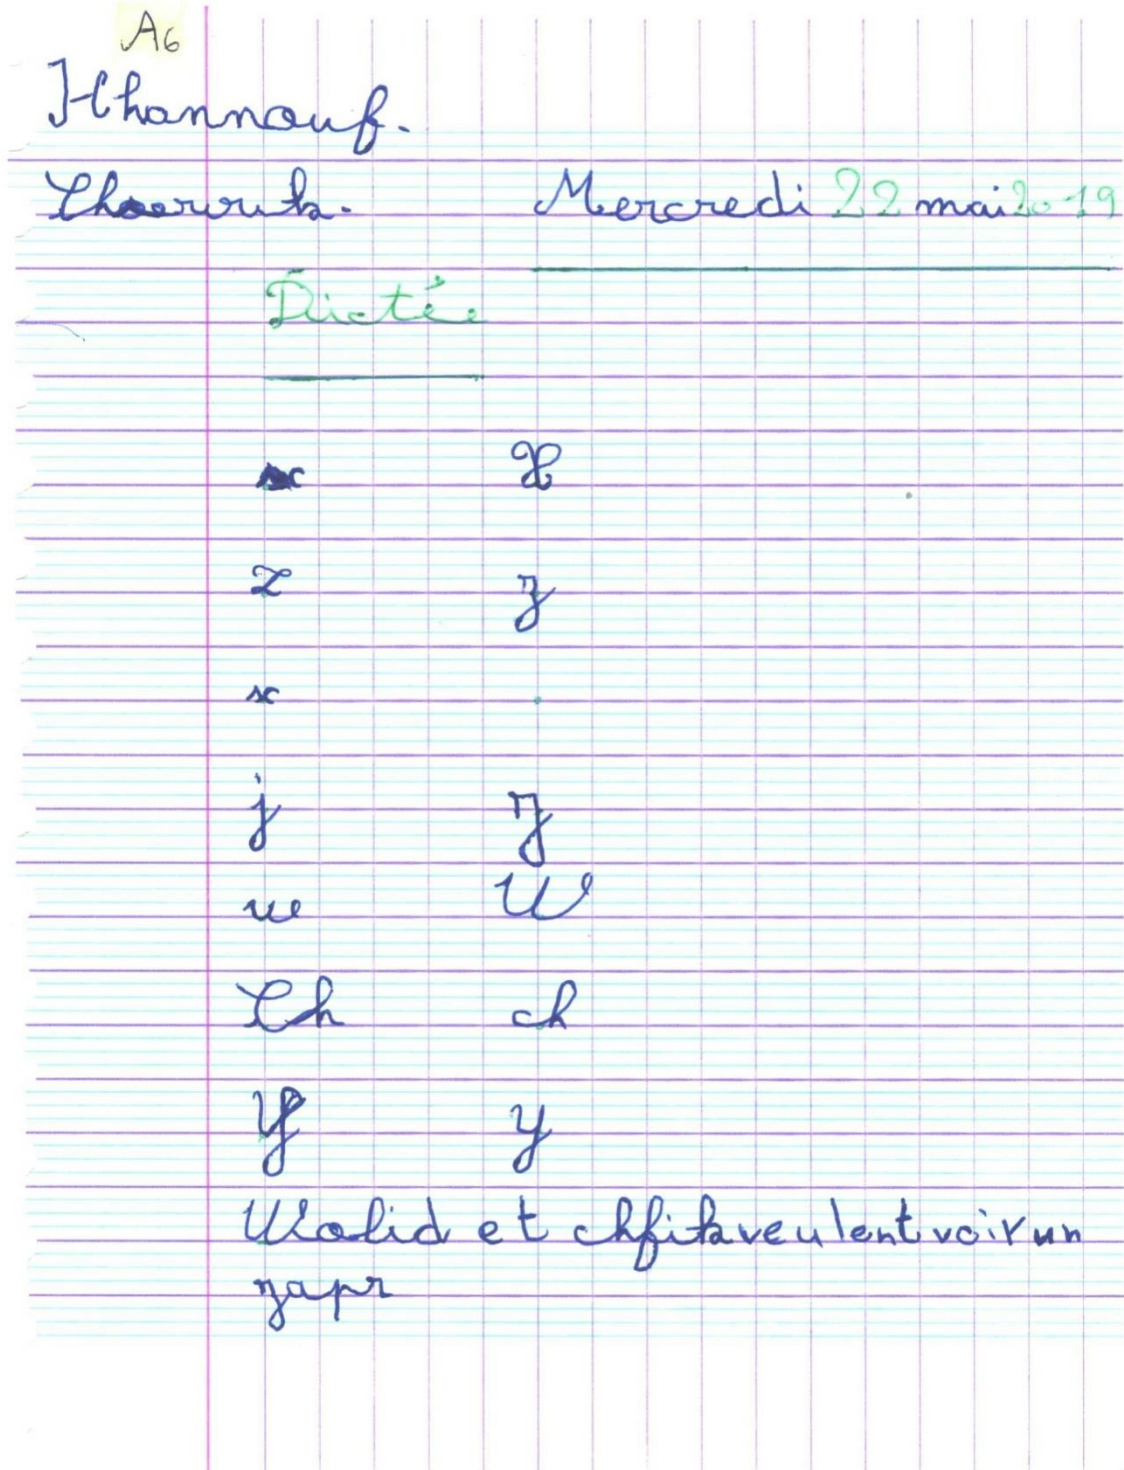 A6
Khannouf.
Mercredi 22 mai 2019
Dictée
x X
z z
x .
j
w W
Ch ch
Y y
Walid et chfik veulent voir un
zapr